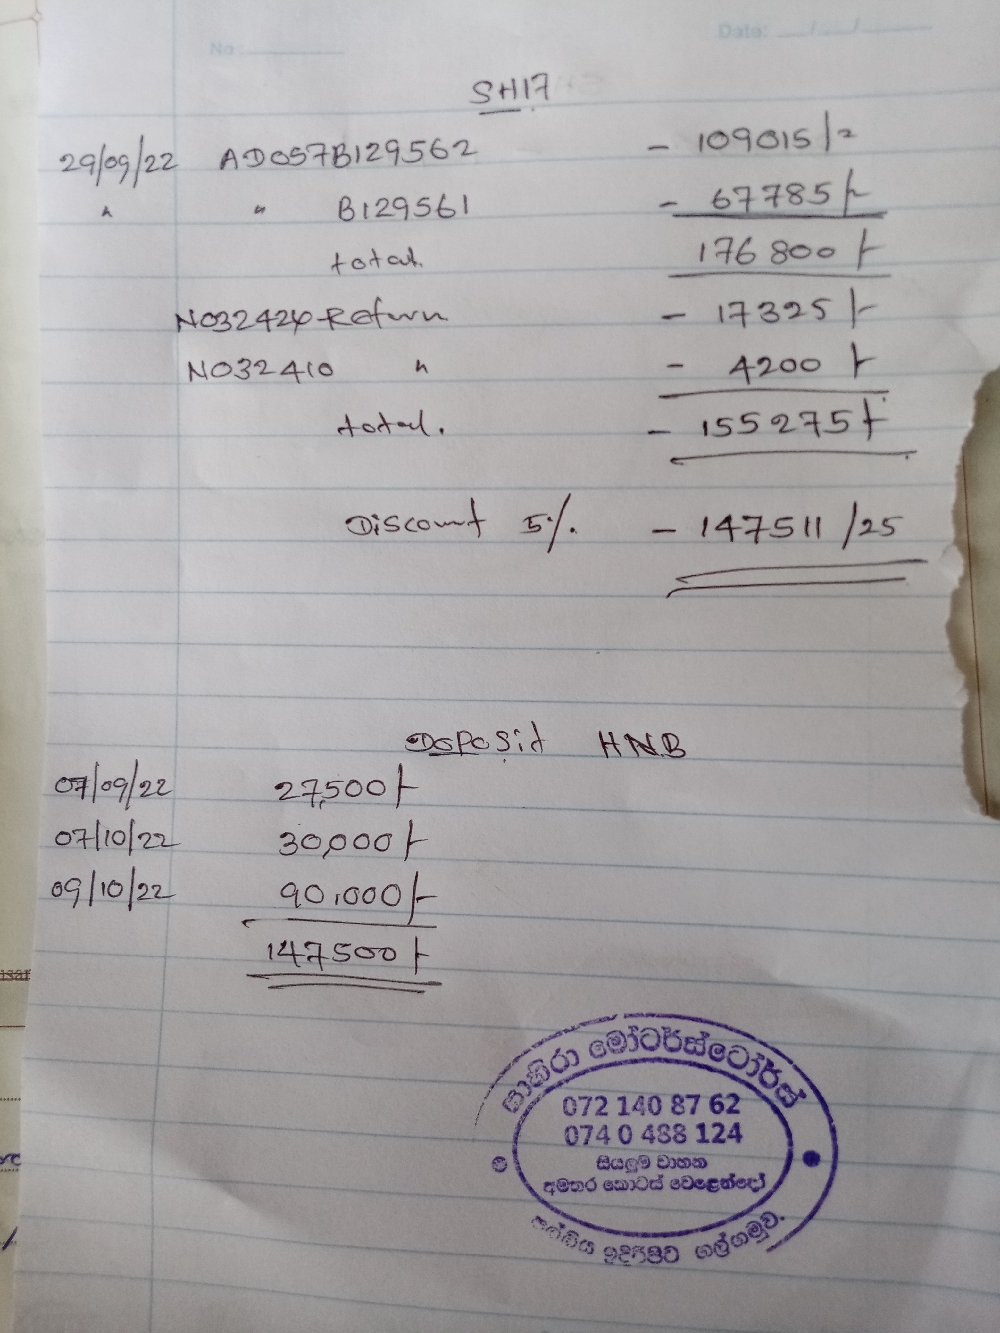 No
Date:
SH17
29/09/22 AD057B129562 - 109015/=
" " B129561 - 67785/-
total. 176800/-
N032424 Return - 17325/-
N032410 " - 4200/-
total. - 155275/-
Discount 5% - 147511/25
Doposit HNB
07/09/22 27,500/-
07/10/22 30,000/-
09/10/22 90,000/-
147500/-
සාහිරා මෝටර්ස්ටෝර්ස්
072 140 87 62
074 0 488 124
සියලුම වාහන
අමතර කොටස් වෙළෙන්දෝ
පල්ලිය ඉදිරිපිට ගල්ගමුව.